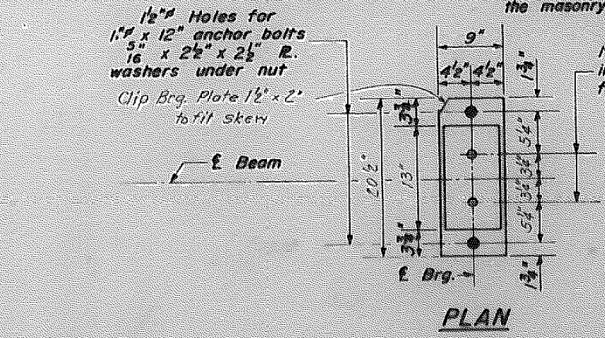 the masonry
1½"ø Holes for
1"ø x 12" anchor bolts
5/16 x 2½" x 2½" PL.
washers under nut
Clip Brg. Plate 1½" x 2"
to fit skew
℄ Beam
9"
4½" 4½"
1¾"
3¾"
5¼"
20½"
13"
3¼"
3¼"
5¼"
3¾"
1¾"
℄ Brg.
PLAN